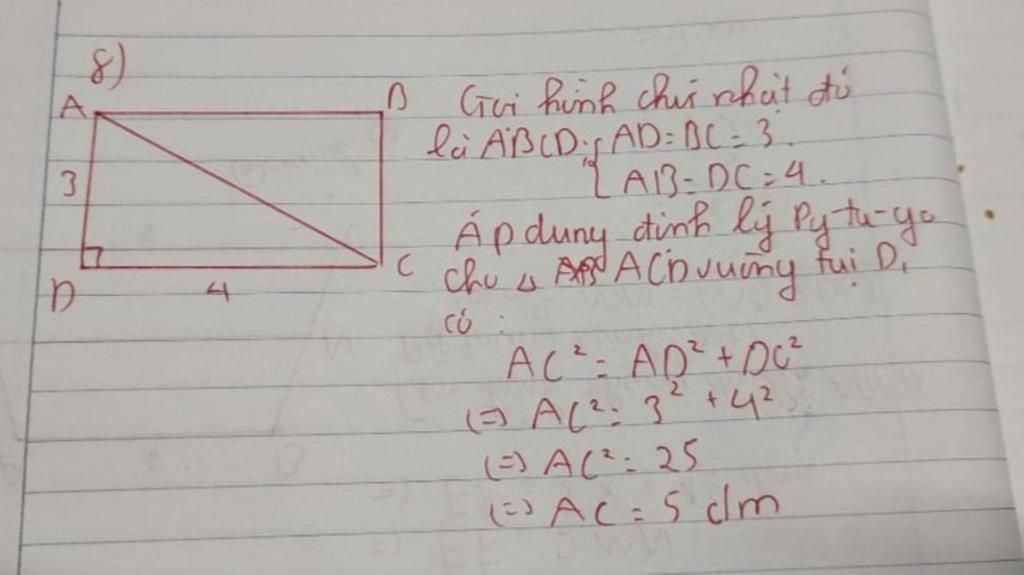 8)
A
B
3
D
4
C
Gọi hình chữ nhật đó
là ABCD: { AD = BC = 3.
AB = DC = 4.
Áp dụng định lý Py-ta-go
cho △ ACD vuông tại D,
có :
AC² = AD² + DC²
(=) AC² = 3² + 4²
(=) AC² = 25
(=) AC = 5 dm